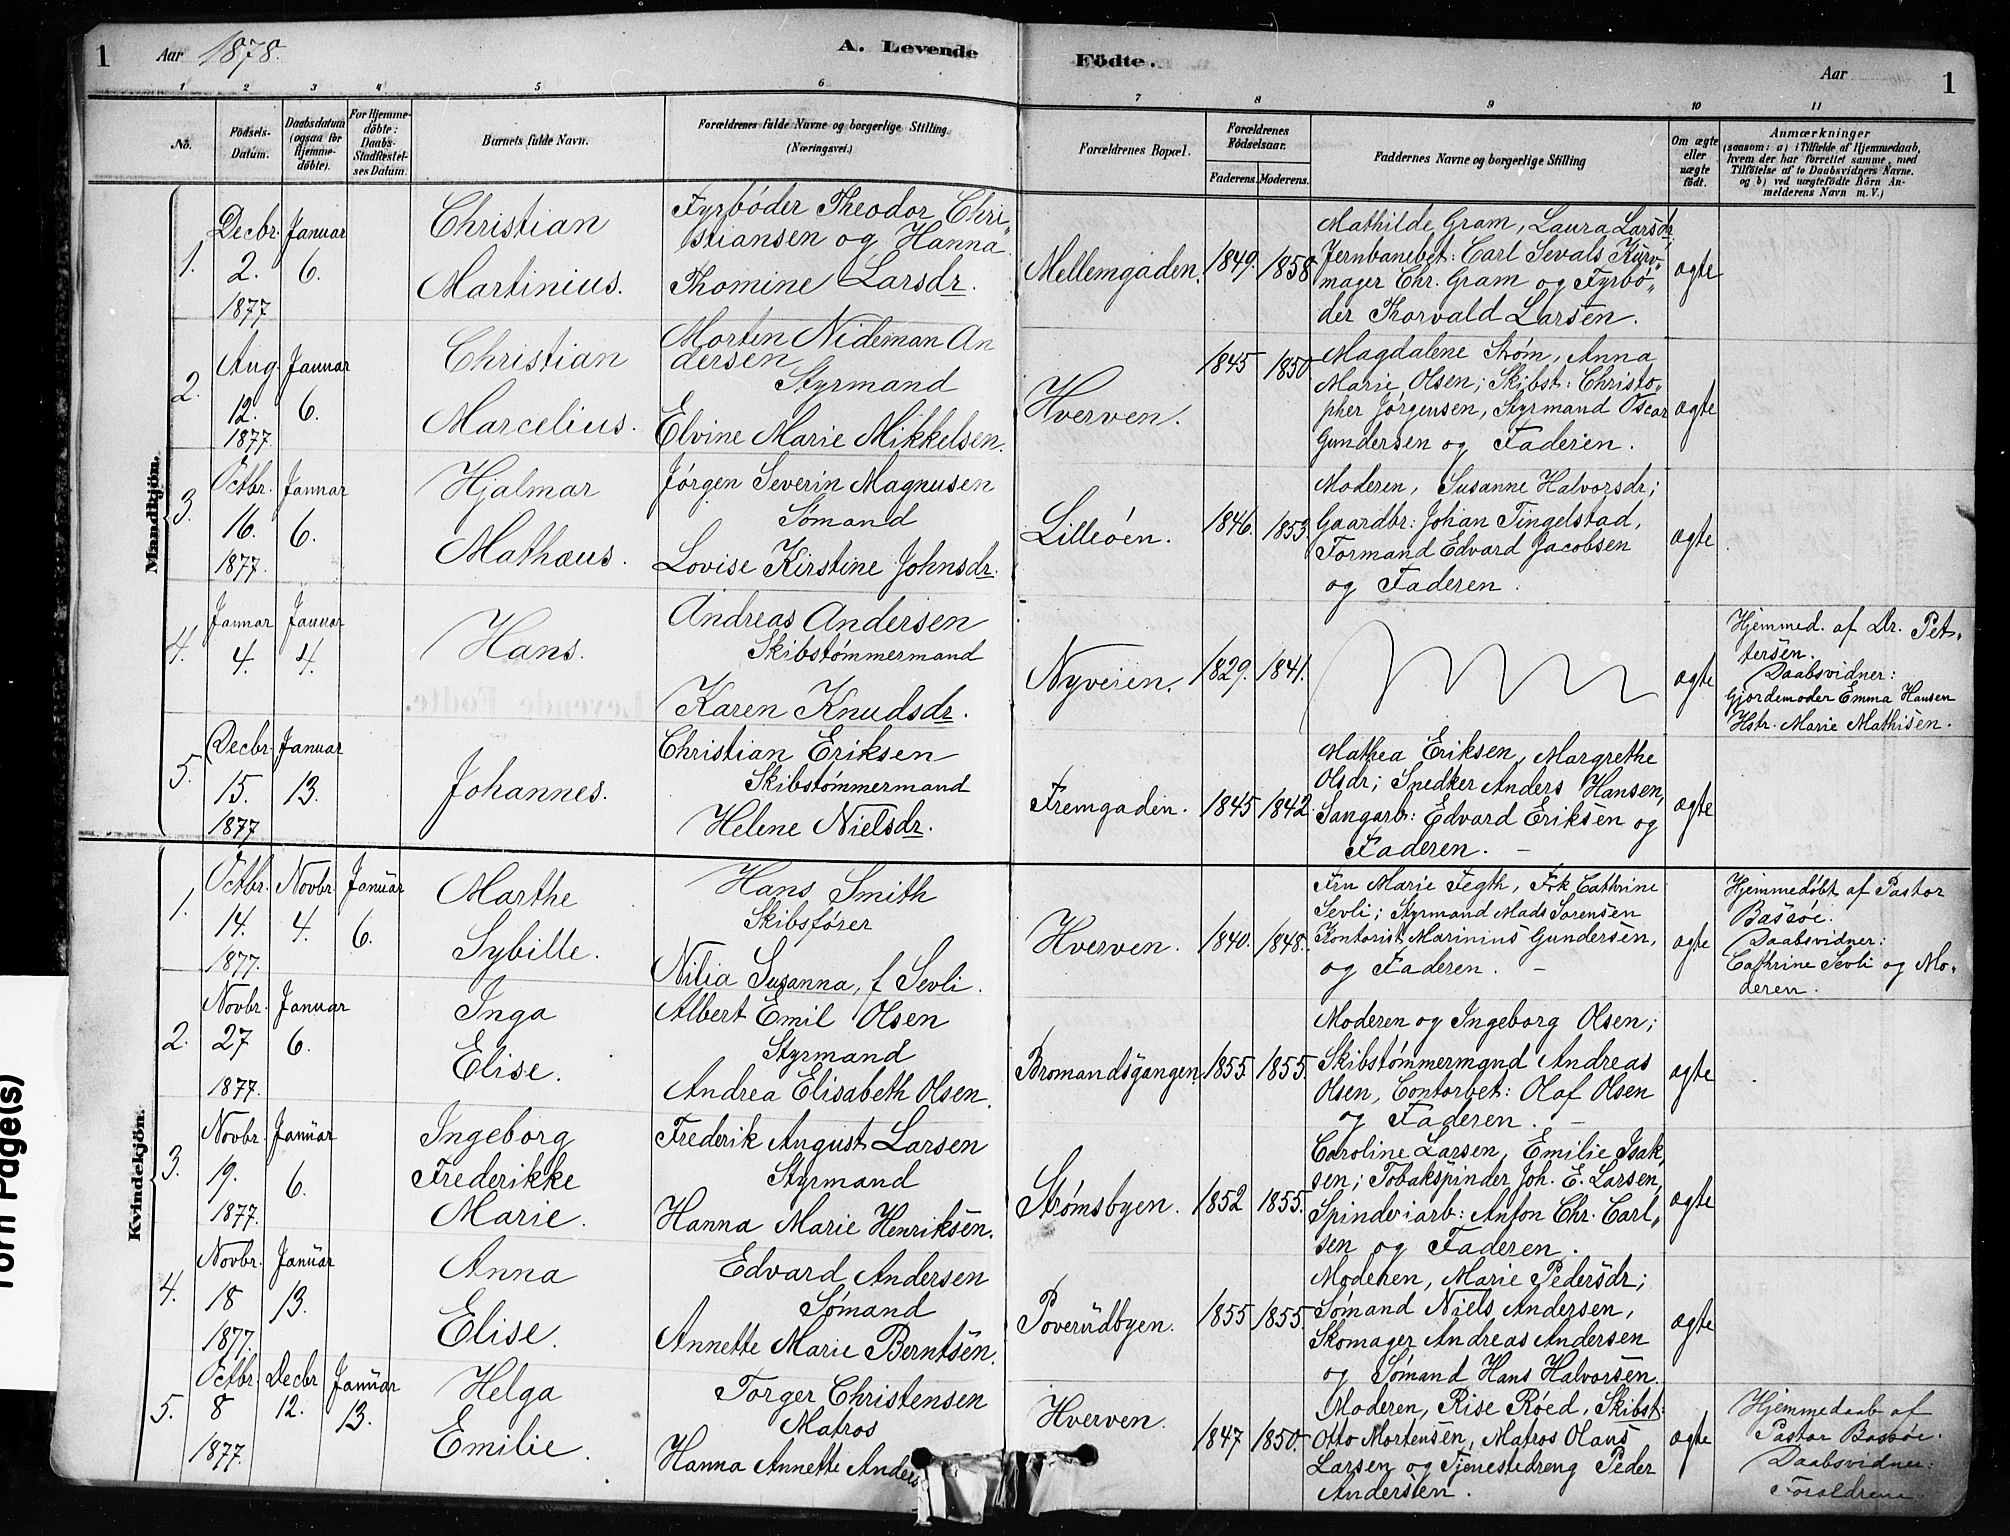 1
Aar 1878.
A. Levende
Födte.
Aar
1
1 2 3 4 5 6 7 8 9 10 11
No.
Födsels-
Datum.
Daabsdatum
(ogsaa for
Hjemme-
döbte).
For Hjemme-
döbte:
Daabs-
Stadfæstel-
ses Datum.
Barnets fulde Navn.
Forældrenes fulde Navne og borgerlige Stilling
(Næringsvei.)
Forældrenes Bopæl.
Forældrenes
Födselsaar.
Faderens. Moderens.
Faddernes Navne og borgerlige Stilling
Om ægte
eller
uægte
födt.
Anmærkninger
(saasom: a) i Tilfælde af Hjemmedaab,
hvem der har forrettet samme, med
Tilföielse af to Daabsvidners Navne.
og b) ved uægtefödte Börn An-
melderens Navn m. V.)
Mandkjön.
1.
Decbr
2.
1877
Januar
6.
Christian
Martinius.
Fyrbøder Theodor Chri„
stiansen og Hanna
Thomine Larsdr.
Mellemgaden.
1849. 1858
Mathilde Gram, Laura Larsdr,
Jernbanebet: Carl Sevals Kurv„
mager Chr. Gram og Fyrbø„
der Thorvald Larsen.
ægte
2.
Aug.
12.
1877
Januar
6.
Christian
Marcelius.
Morten Nideman An
dersen
Styrmand
Elvine Marie Mikkelsen.
Hverven.
1845 1850
Magdalene Strøm, Anna
Marie Olsen; Skibst: Christo„
pher Jørgensen, Styrmand Oscar
Gundersen og Faderen.
ægte
3.
Octbr.
16.
1877.
Januar
6.
Hjalmar
Mathæus.
Jørgen Severin Magnusen
Sømand
Lovise Kirstine Johnsdr.
Lilleøen.
1846. 1853.
Moderen, Susanne Halvorsdr;
Gaardbr: Johan Tingelstad,
Formand Edvard Jacobsen
og Faderen.
ægte
4.
Januar
4.
Januar
4.
Hans.
Andreas Andersen
Skibstømmermand
Karen Knudsdr.
Nyveien.
1829. 1841.
ægte
Hjemmed. af Dr. Pet„
tersen.
Daabsvidner:
Gjordemoder Emma Hansen
Hstr. Marie Mathisen.
5.
Decbr.
15.
1877
Januar
13.
Johannes.
Christian Eriksen
Skibstømmermand
Helene Nielsdr.
Fremgaden.
1845 1842.
Mathea Eriksen, Margrethe
Olsdr; Snedker Anders Hansen,
Sangarb: Edvard Eriksen og
Faderen.
ægte
Kvindekjön.
1.
Octbr.
14.
1877.
Novbr.
4.
Januar
6.
Marthe
Sybille.
Hans Smith
Skibsfører
Nilia Susanna, f Sevli.
Hverven.
1840. 1848.
Fru Marie Fegth, Frk Cathrine
Sevli; Styrmand Mads Sørensen
Kontorist Marinius Gundersen,
og Faderen.
ægte
Hjemmedøbt af Pastor
Bassøe.
Daabsvidner:
Cathrine Sevli og Mo„
deren.
2.
Novbr.
27
1877.
Januar
6.
Inga
Elise.
Albert Emil Olsen
Styrmand
Andrea Elisabeth Olsen.
Bromandsgangen
1855. 1855.
Moderen og Ingeborg Olsen;
Skibstømmermand Andreas
Olsen, Contorbet: Olaf Olsen
og Faderen.
ægte
3.
Novbr.
19.
1877.
Januar
6.
Ingeborg
Frederikke
Marie.
Frederik August Larsen
Styrmand
Hanna Marie Henriksen.
Strømsbyen.
1852 1855.
Caroline Larsen, Emilie Isak„
sen; Tobakspinder Joh. E. Larsen,
Spinderiarb: Anton Chr. Carl„
sen og Faderen.
ægte
4.
Novbr.
18
1877.
Januar
13.
Anna
Elise.
Edvard Andersen
Sømand
Annette Marie Berntsen.
Poverudbyen.
1855 1855.
Moderen, Marie Pedersdr;
Sømand Niels Andersen,
Skomager Andreas Andersen
og Sømand Hans Halvorsen.
ægte
5.
Octbr.
8
1877.
Decbr
12.
Januar
13.
Helga
Emilie.
Torger Christensen
Matros
Hanna Annette Anders
Hverven.
1847 1850.
Moderen, Rise Røed, Skibst:
Otto Mortensen, Matros Olaus
Larsen og Tjenestedreng Peder
Andersen.
ægte
Hjemmedaab af
Pastor Bassøe.
Daabsvidner:
Forældrene.
Torn Page(s)